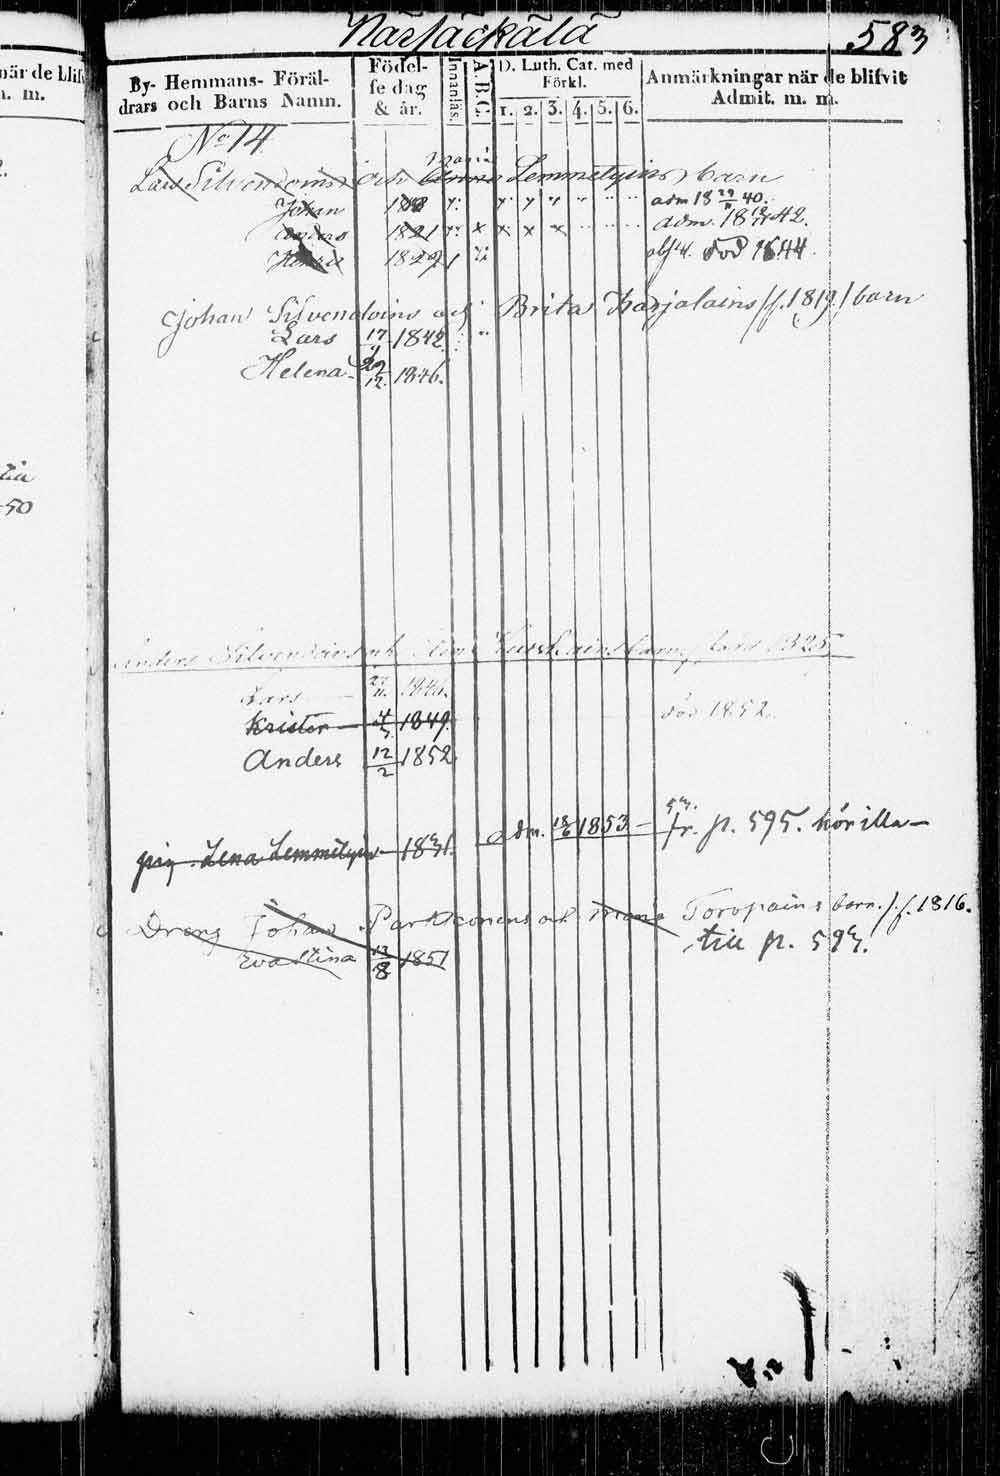 när de blifv
n. m.
tia
50
Närsäckälä 583
By- Hemmans- Föräl-
drars och Barns Namn.
Födel-
se dag
& år.
Innanläs.
A.B.C.
D. Luth. Cat. med
Förkl.
1. 2. 3. 4. 5. 6.
Anmärkningar när de blifvit
Admit. m. m.
No 14
Maria
Lars Silvendoins och Lemmetyins barn
Johan adm 18 29/11 40.
Anders 1821 adm. 18 42.
182 död 1844.
Johan Silvendoins och Brita Karjalains /f. 1819./ barn
Lars 17 1842.
Helena 29/12. 1846.
Anders Silvendoins och barn, född 1825
Lars 27/11. 1846.
Krister 4 1849. död 1852.
Anders 12/2 1852
pig Lena Lemmetyin 1831. adm. 18/6 1853 - fr. p. 595. hör illa -
Dräng Johan och Maria Toropains barn. /f. 1816.
Eva Stina 12/8 1851 till p. 593.